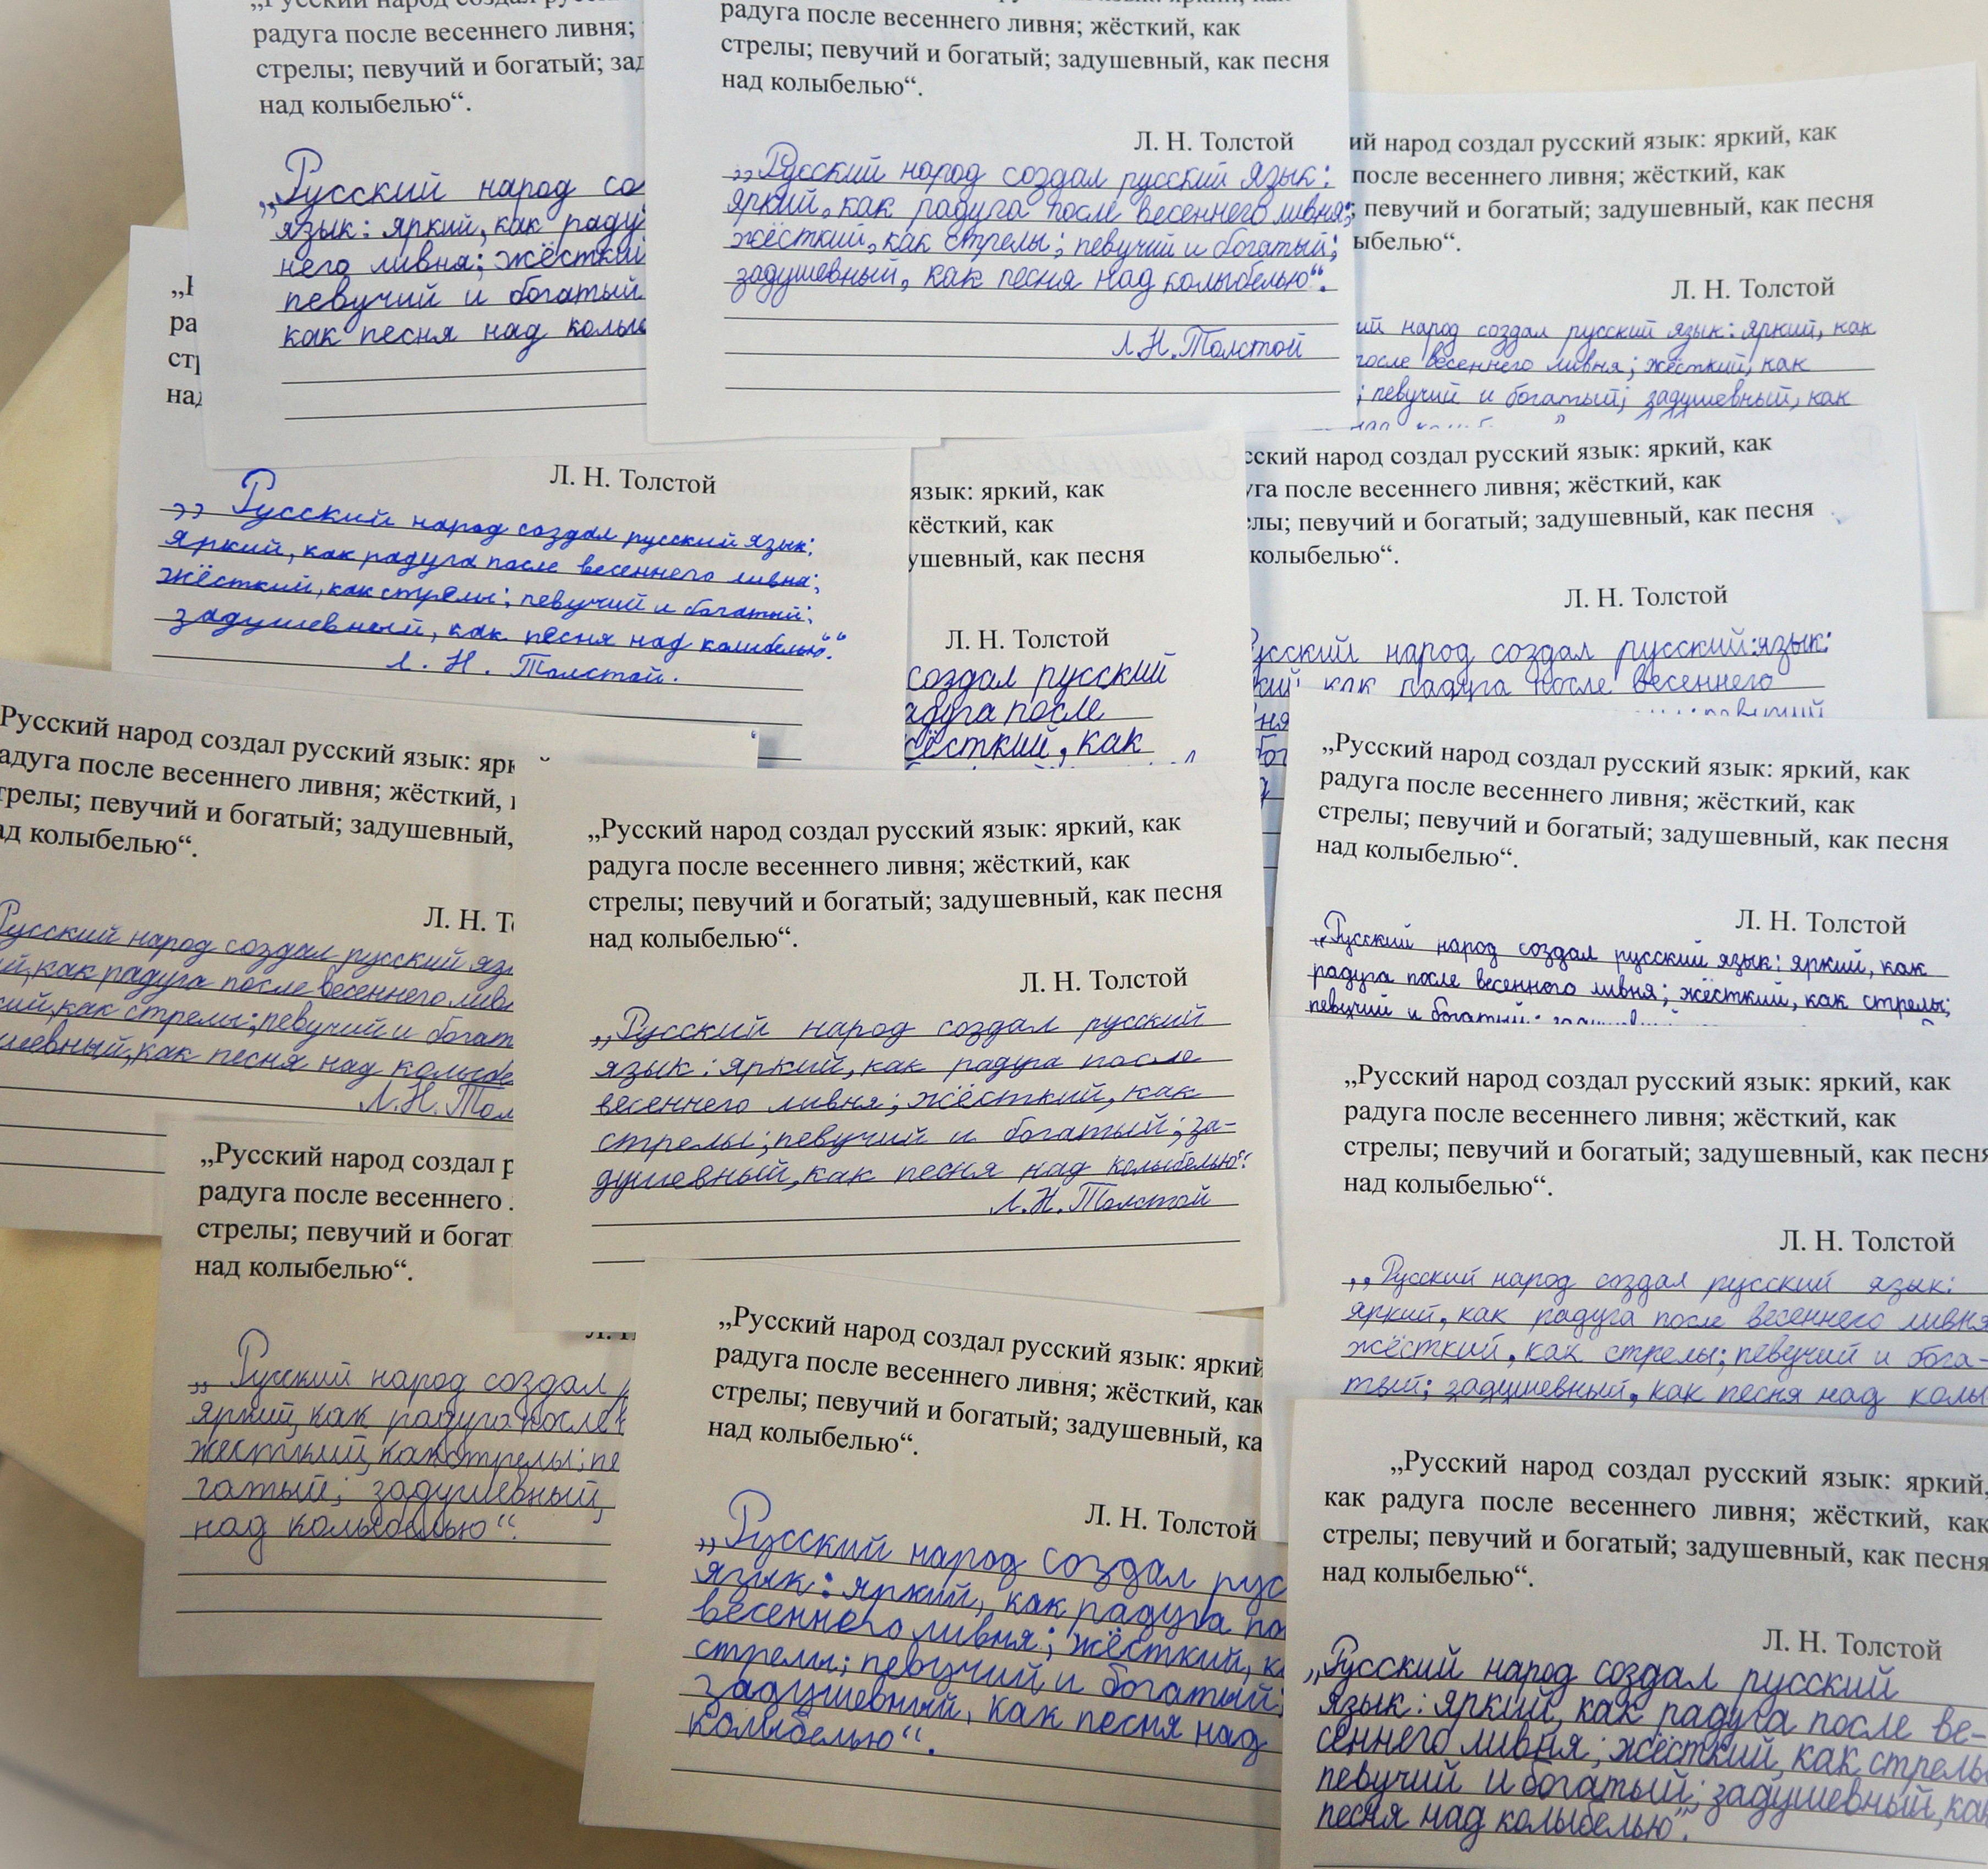 „Русский народ создал русский
радуга после весеннего ливня;
стрелы; певучий и богатый;
над колыбелью“.
„Русский народ со
язык: яркий, как раду
него ливня; жёсткий
певучий и богатый
как песня над колыб
радуга после весеннего ливня; жёсткий, как
стрелы; певучий и богатый; задушевный, как песня
над колыбелью“.
Л. Н. Толстой
„Русский народ создал русский язык:
яркий, как радуга после весеннего ливня;
жёсткий, как стрелы; певучий и богатый;
задушевный, как песня над колыбелью“.
Л.Н. Толстой
ий народ создал русский язык: яркий, как
после весеннего ливня; жёсткий, как
; певучий и богатый; задушевный, как песня
ыбелью“.
Л. Н. Толстой
ий народ создал русский язык: яркий, как
после весеннего ливня; жёсткий, как
; певучий и богатый; задушевный, как
ра
над
Л. Н. Толстой
„Русский народ создал русский язык:
яркий, как радуга после весеннего ливня;
жёсткий, как стрелы; певучий и богатый;
задушевный, как песня над колыбелью“.
Л. Н. Толстой.
язык: яркий, как
жёсткий, как
ушевный, как песня
Л. Н. Толстой
создал русский
адуга после
жёсткий, как
сский народ создал русский язык: яркий, как
уга после весеннего ливня; жёсткий, как
елы; певучий и богатый; задушевный, как песня
колыбелью“.
Л. Н. Толстой
Русский народ создал русский: язык:
кий: как радуга после весеннего
певучий
Русский народ создал русский язык: ярк
адуга после весеннего ливня; жёсткий,
трелы; певучий и богатый; задушевный,
ад колыбелью“.
Л. Н. То
Русский народ создал русский язы
ий, как радуга после весеннего ливн
кий, как стрелы; певучий и богат
шевный, как песня над колыбе
Л.Н. Тол
„Русский народ создал русский язык: яркий, как
радуга после весеннего ливня; жёсткий, как
стрелы; певучий и богатый; задушевный, как песня
над колыбелью“.
Л. Н. Толстой
„Русский народ создал русский
язык: яркий, как радуга после
весеннего ливня; жёсткий, как
стрелы; певучий и богатый; за-
душевный, как песня над колыбелью“.
Л.Н. Толстой
„Русский народ создал русский язык: яркий, как
радуга после весеннего ливня; жёсткий, как
стрелы; певучий и богатый; задушевный, как песня
над колыбелью“.
Л. Н. Толстой
„Русский народ создал русский язык: яркий, как
радуга после весенного ливня; жёсткий, как стрелы;
певучий и богатый;
„Русский народ создал русский язык: яркий, как
радуга после весеннего ливня; жёсткий, как
стрелы; певучий и богатый; задушевный, как песня
над колыбелью“.
Л. Н. Толстой
„Русский народ создал русский язык:
яркий, как радуга после весеннего ливня
жёсткий, как стрелы; певучий и бога-
тый; задушевный, как песня над колы
„Русский народ создал р
радуга после весеннего
стрелы; певучий и богат
над колыбелью“.
„Русский народ создал
яркий, как радуга после
жесткий, как стрелы; пе
гатый; задушевный,
над колыбелью“.
„Русский народ создал русский язык: яркий
радуга после весеннего ливня; жёсткий, как
стрелы; певучий и богатый; задушевный, ка
над колыбелью“.
Л. Н. Толстой
„Русский народ создал рус
язык: яркий, как радуга по
весеннего ливня; жёсткий, к
стрелы; певучий и богатый;
задушевный, как песня над
колыбелью“.
„Русский народ создал русский язык: яркий,
как радуга после весеннего ливня; жёсткий, как
стрелы; певучий и богатый; задушевный, как песня
над колыбелью“.
Л. Н. Толстой
„Русский народ создал русский
язык: яркий, как радуга после ве-
сеннего ливня; жёсткий, как стрелы
певучий и богатый; задушевный, как
песня над колыбелью”.